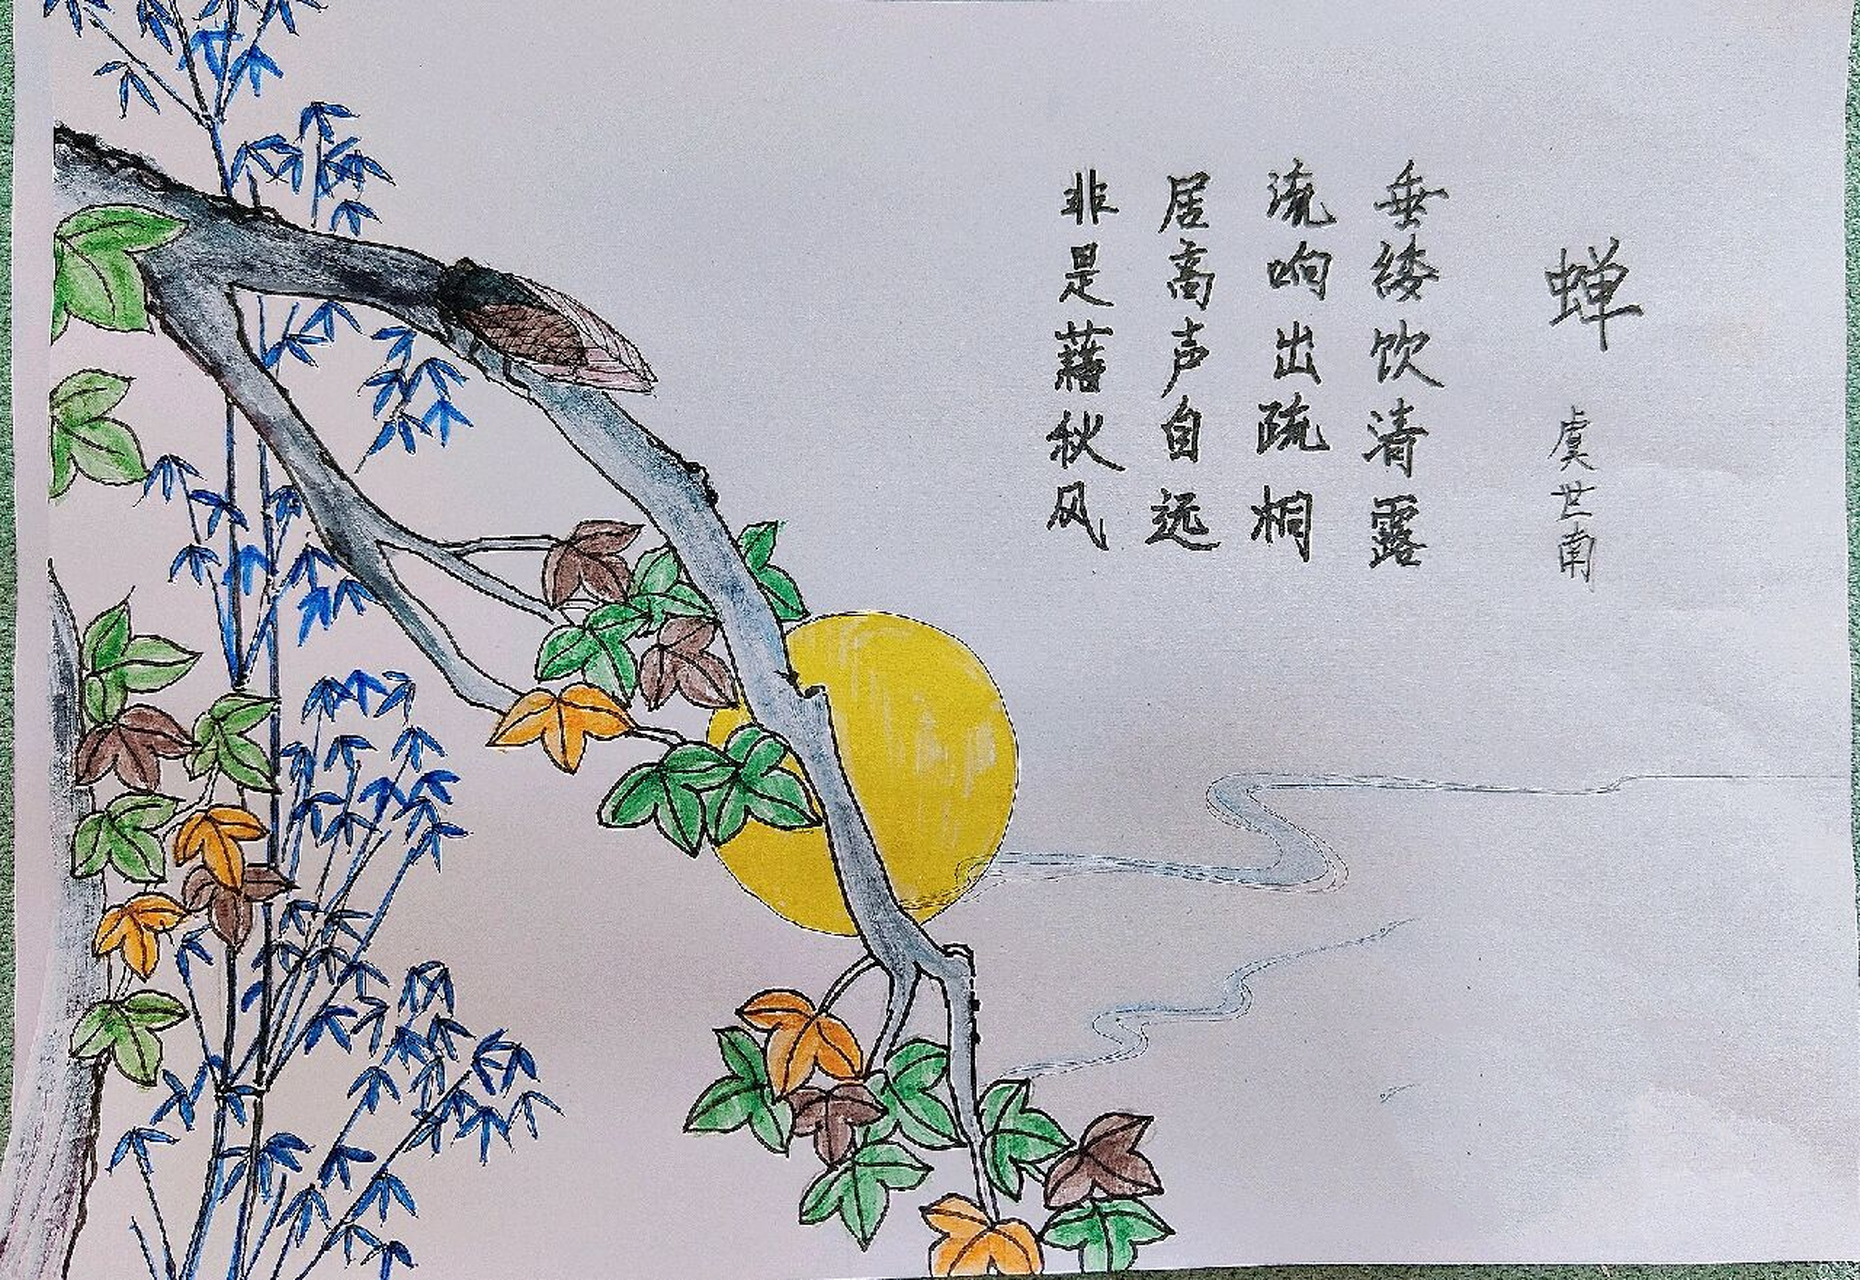 蝉
虞世南
垂緌饮清露
流响出疏桐
居高声自远
非是藉秋风